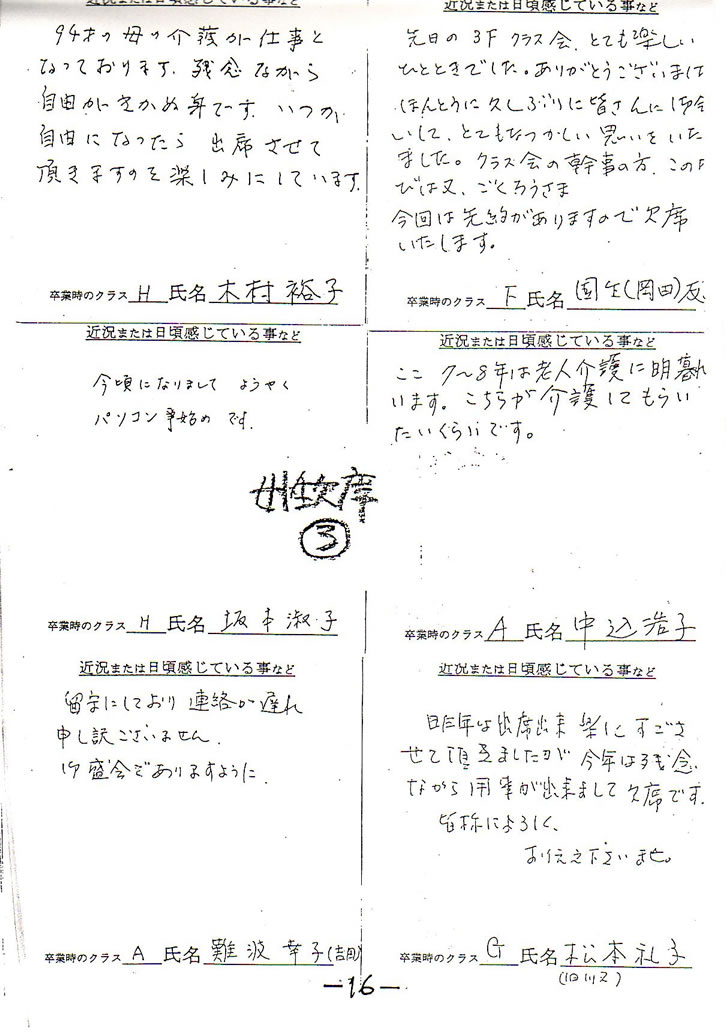 近況または日頃感じている事など
94才の母の介護が仕事と
なっております. 残念ながら
自由がきかぬ身です. いつか,
自由になったら 出席させて
頂きますのを楽しみにしています.
卒業時のクラス H 氏名 木村 裕子
近況または日頃感じている事など
先日の 3F クラス会, とても楽しい
ひとときでした。ありがとうございまし
ほんとうに久しぶりに皆さんにお会
いして, とてもなつかしい思いをいた
ました。クラス会の幹事の方, このた
びは又, ごくろうさま
今回は先約がありますので欠席
いたします。
卒業時のクラス F 氏名 (岡田)
近況または日頃感じている事など
今頃になりまして ようやく
パソコン事始め です.
卒業時のクラス H 氏名 坂本 淑子
近況または日頃感じている事など
ここ 7〜8年は老人介護に明暮れ
います。こちらが介護してもらい
たいくらいです。
卒業時のクラス A 氏名 中込浩子
女性欠席
③
近況または日頃感じている事など
留守にしており 連絡が遅れ
申し訳ございません.
御盛会でありますように.
卒業時のクラス A 氏名 難波 幸子(吉田)
近況または日頃感じている事など
昨年は出席出来 楽しくすごさ
せて頂きましたが 今年は残念
ながら 用事が出来まして 欠席です.
皆様によろしく,
お伝え下さいませ。
卒業時のクラス G 氏名 松本 礼子
-16-